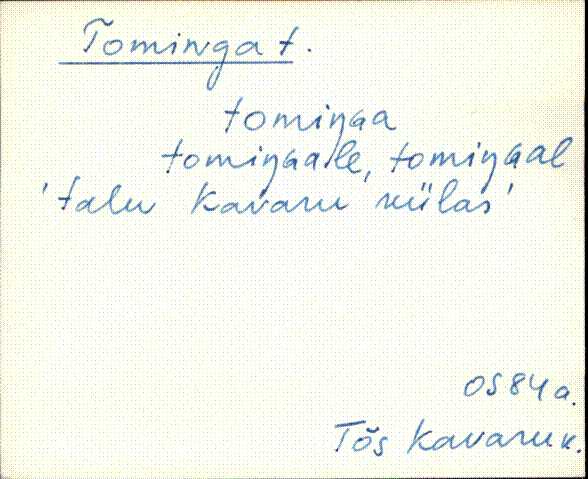 Tominga t.
tomiŋga
tomiŋgalle, tomiŋgal
'talu Kavaru külas'
OS 84 a.
Tõs Kavaru k.